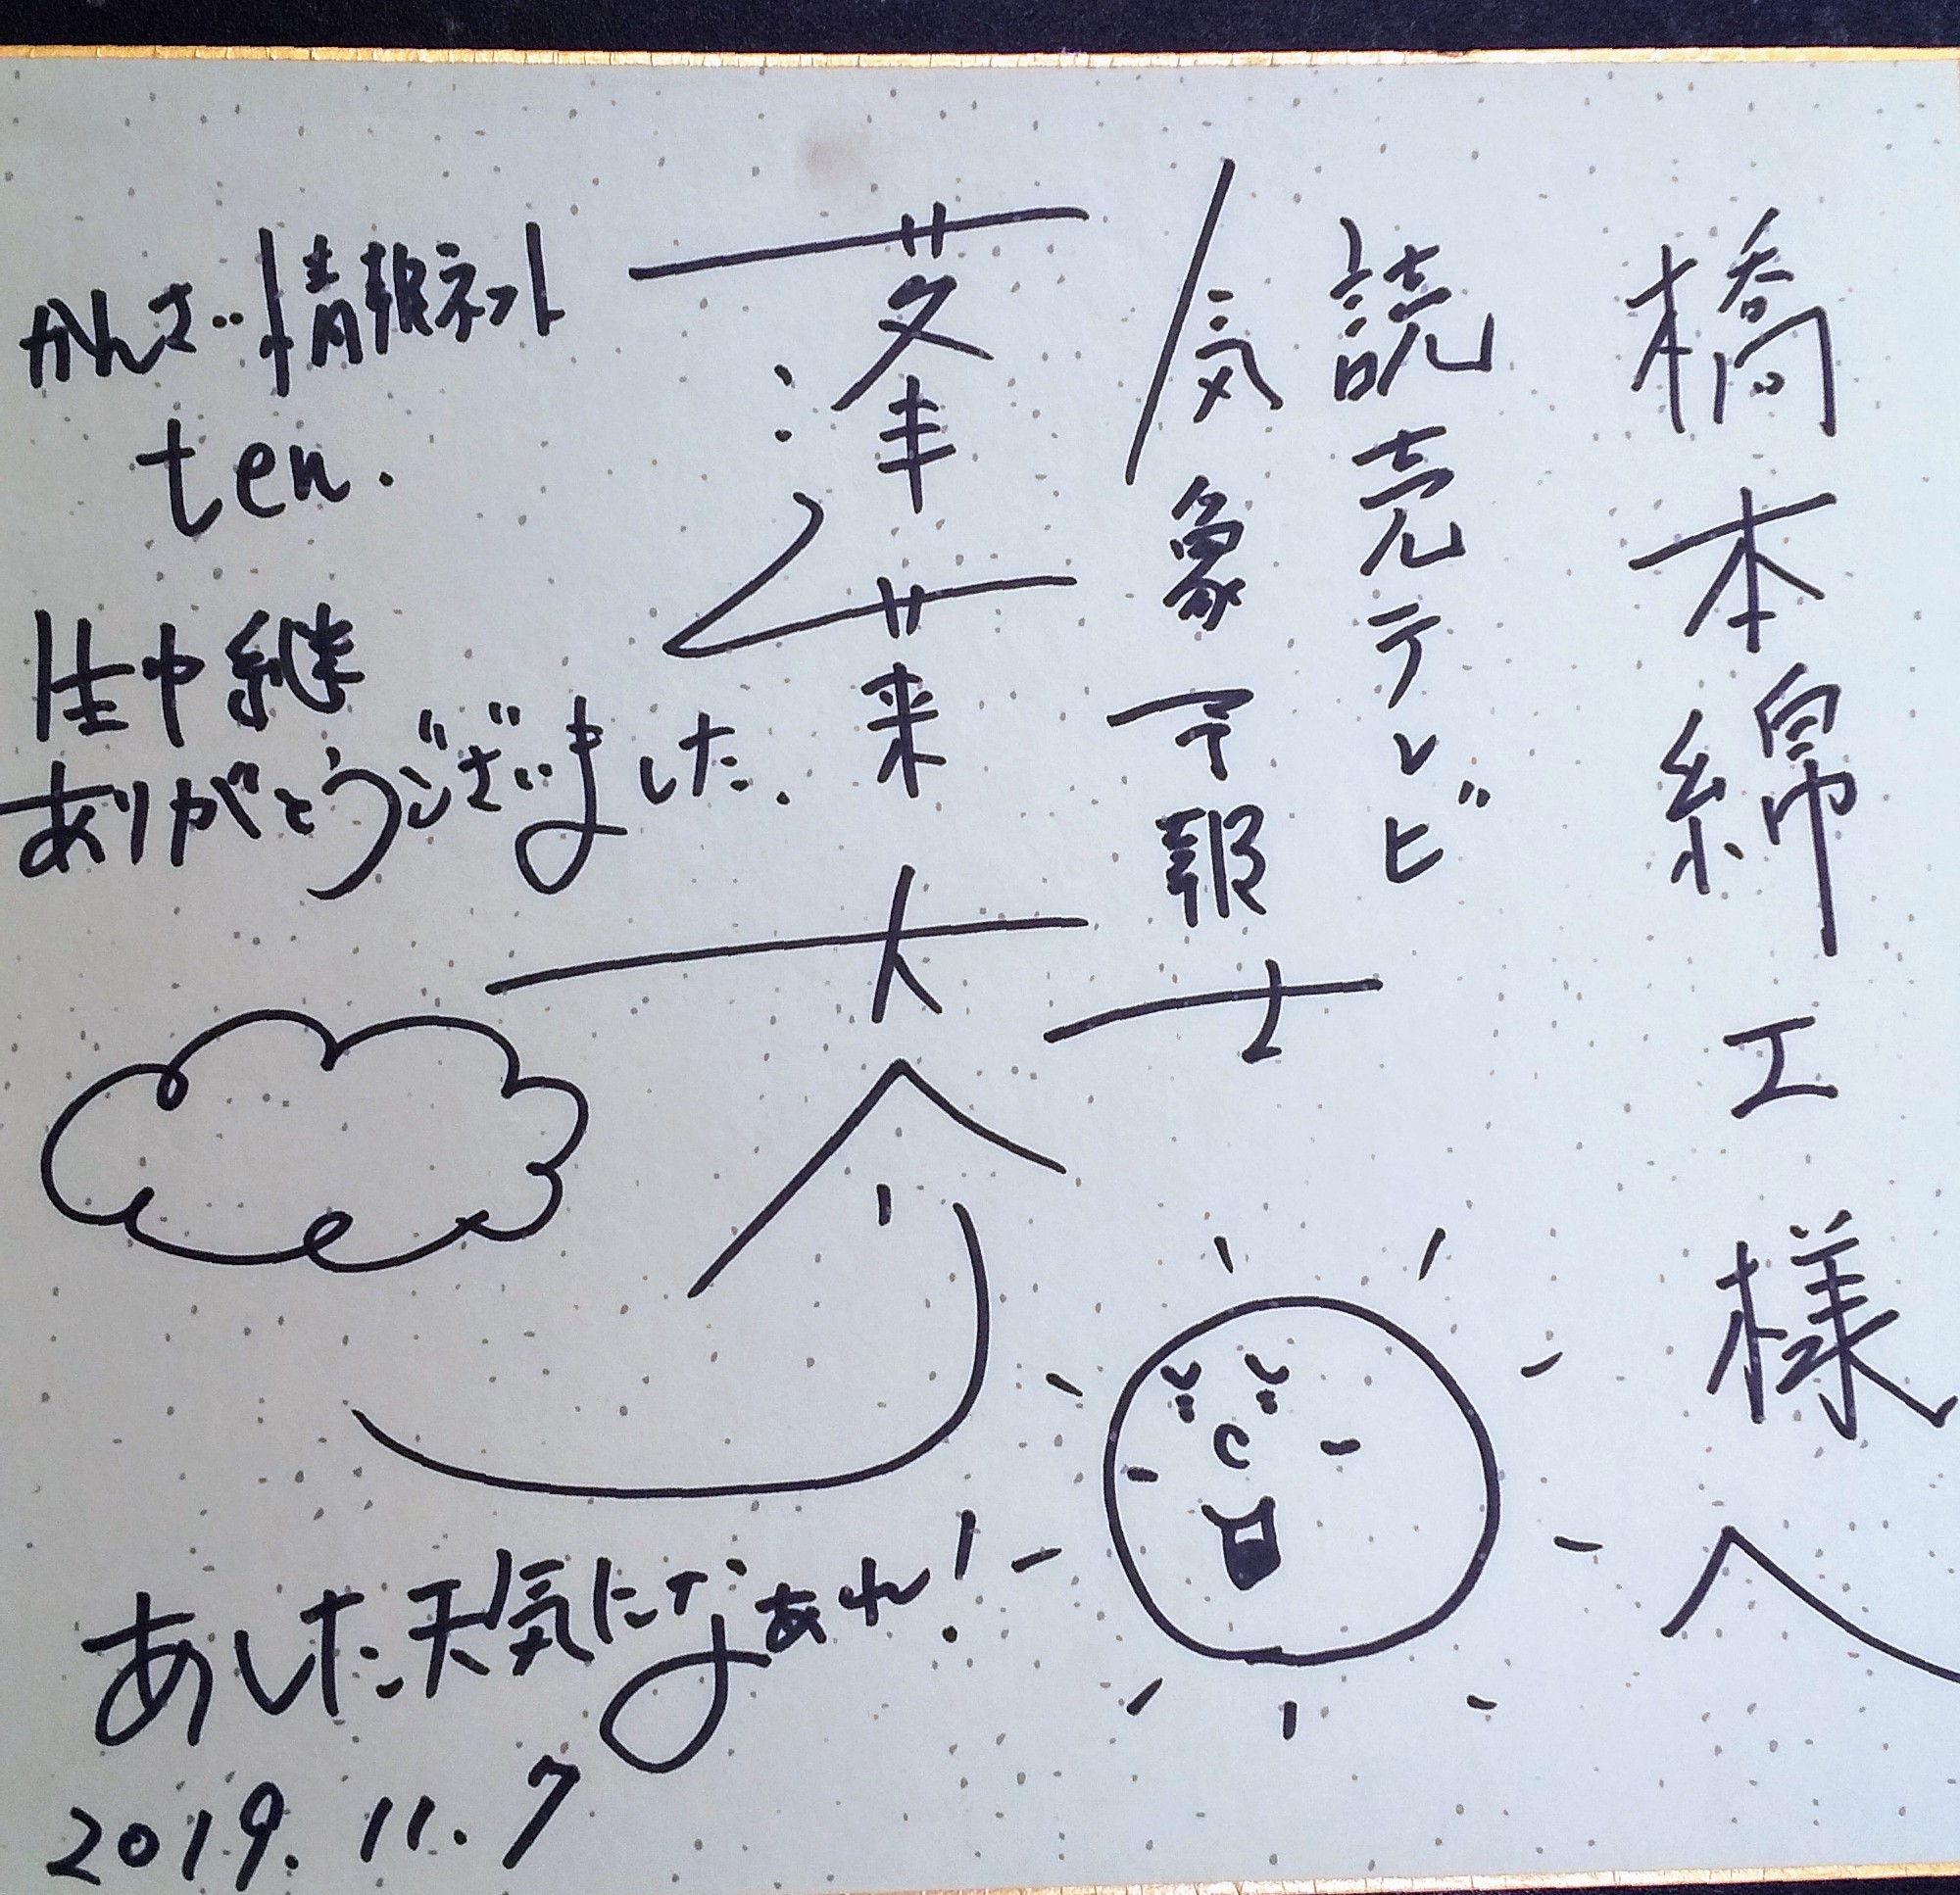 橋本綿工様へ
読売テレビ
気象予報士
蓬莱大介
かんさい情報ネット
ten.
生中継
ありがとうございました.
あした天気になあれ!
2019.11.7